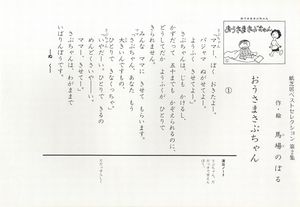 紙芝居ベストセレクション 第2集
作・絵 馬場のぼる
おうさまさぶちゃん
①
「ママー、ぼく おきたよー。
パジャマ ぬがせてよー。
ようふく きせてよー。」
さぶちゃんは、じも かけるし、
かずだって 五十までも かぞえられるのに、
どうしてだか ようふくが ひとりで
きられません。
いつも ママに きせて もらいます。
「さぶちゃん、あなた もう
大きいんですもの、
ひとりで きなくちゃ。」
「いやだーい。ひとりで きるの
めんどくさいやーい。」
さぶちゃんは、わがままで
いばりんぼうです。
―ぬく―